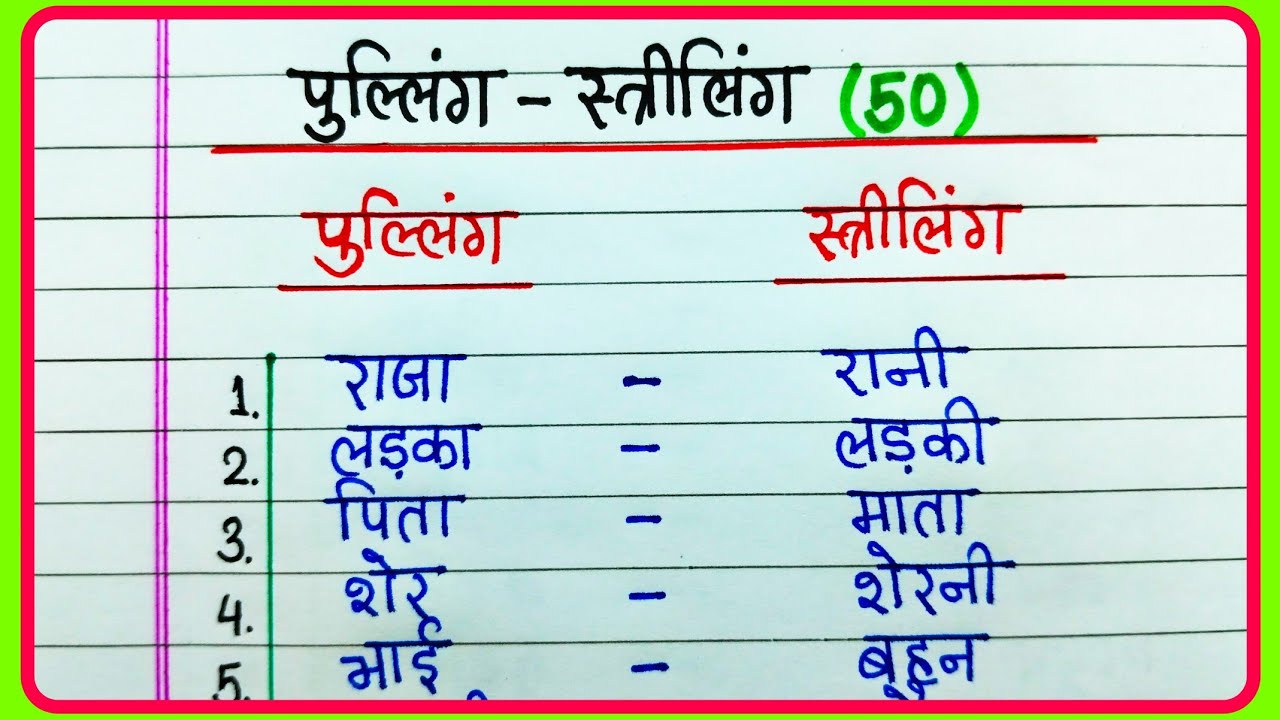 पुल्लिंग - स्त्रीलिंग (50)
पुल्लिंग स्त्रीलिंग
1. राजा - रानी
2. लड़का - लड़की
3. पिता - माता
4. शेर - शेरनी
5. भाई - बहन